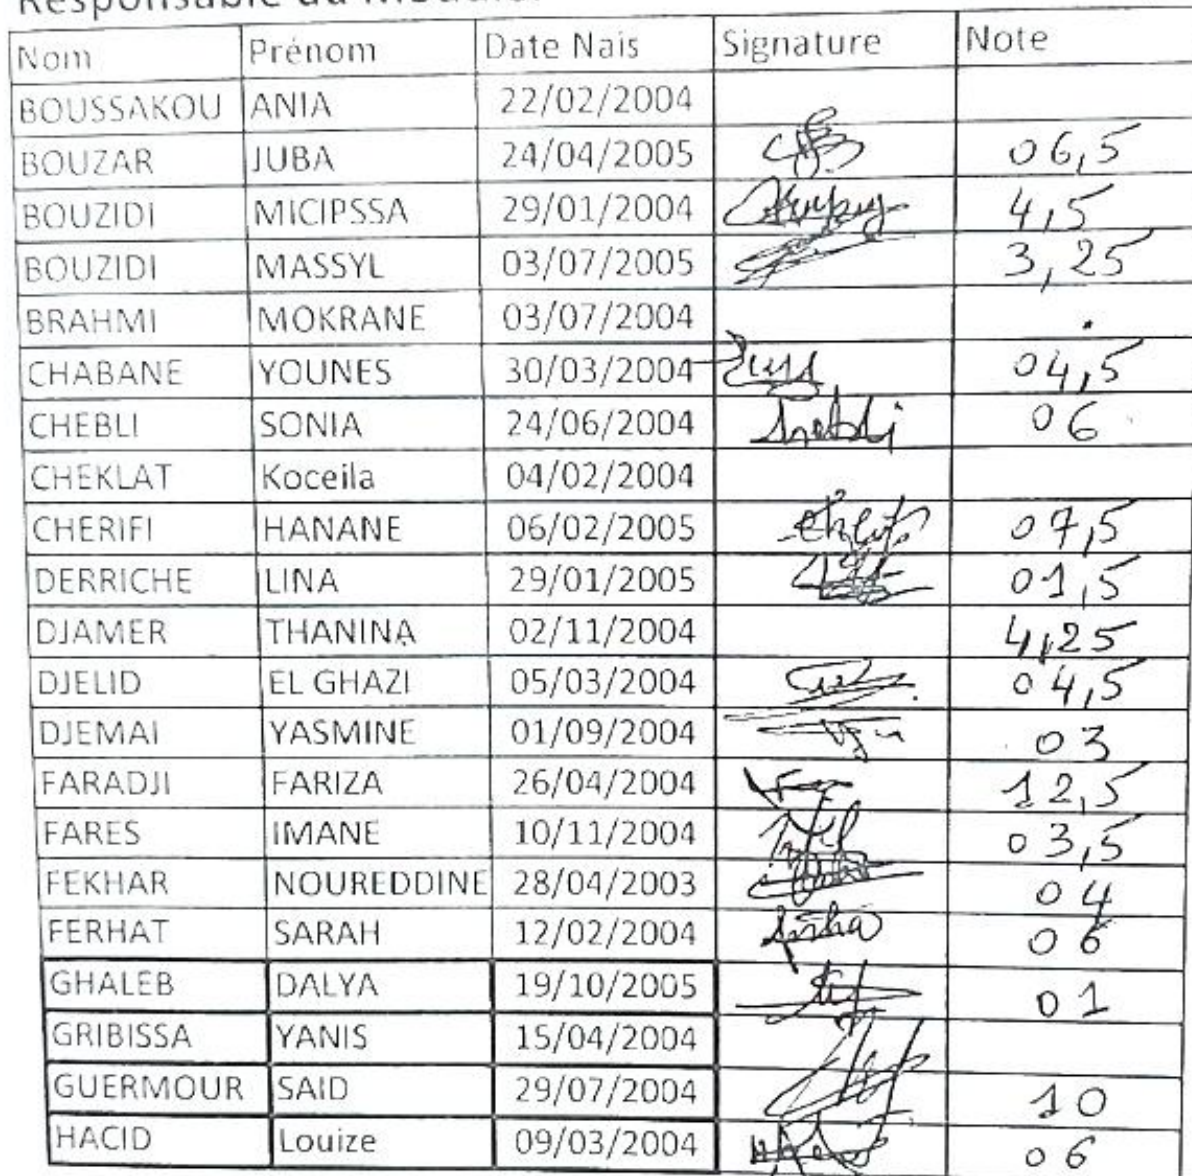 Responsable du Module:
Nom Prénom Date Nais Signature Note
BOUSSAKOU ANIA 22/02/2004
BOUZAR JUBA 24/04/2005 06,5
BOUZIDI MICIPSSA 29/01/2004 4,5
BOUZIDI MASSYL 03/07/2005 3,25
BRAHMI MOKRANE 03/07/2004
CHABANE YOUNES 30/03/2004 04,5
CHEBLI SONIA 24/06/2004 06
CHEKLAT Koceila 04/02/2004
CHERIFI HANANE 06/02/2005 07,5
DERRICHE LINA 29/01/2005 01,5
DJAMER THANINA 02/11/2004 4,25
DJELID EL GHAZI 05/03/2004 04,5
DJEMAI YASMINE 01/09/2004 03
FARADJI FARIZA 26/04/2004 12,5
FARES IMANE 10/11/2004 03,5
FEKHAR NOUREDDINE 28/04/2003 04
FERHAT SARAH 12/02/2004 06
GHALEB DALYA 19/10/2005 01
GRIBISSA YANIS 15/04/2004
GUERMOUR SAID 29/07/2004 10
HACID Louize 09/03/2004 06